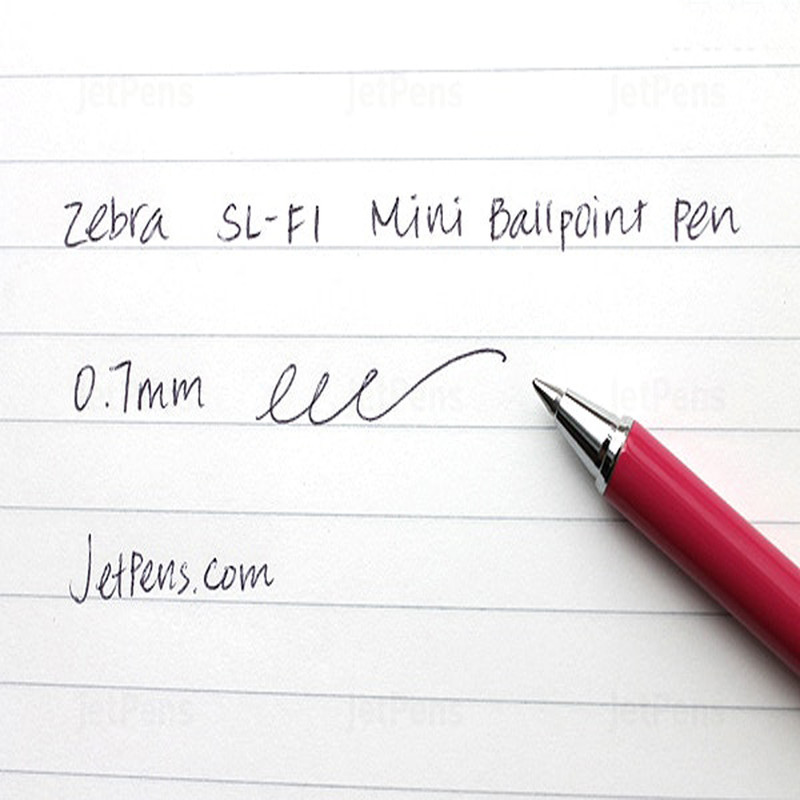 JetPens JetPens JetPens
Zebra SL-F1 Mini Ballpoint Pen
0.7mm
JetPens
JetPens.com
JetPens JetPens JetPens